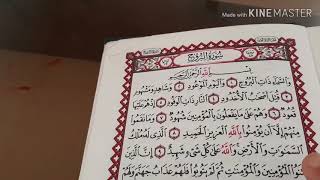 Made with KINEMASTER
سورة البروج
بسم الله الرحمن الرحيم
والسماء ذات البروج ١ واليوم الموعود ٢ وشاهد ومشهود
٣ قتل أصحاب الأخدود ٤ النار ذات الوقود ٥ إذ هم عليها
قعود ٦ وهم على ما يفعلون بالمؤمنين شهود ٧ وما نقموا
منهم إلا أن يؤمنوا بالله العزيز الحميد ٨ الذي له ملك
السماوات والأرض والله على كل شيء شهيد ٩ إن الذين
فتنوا المؤمنين والمؤمنات ثم لم يتوبوا فلهم عذاب جهنم ولهم